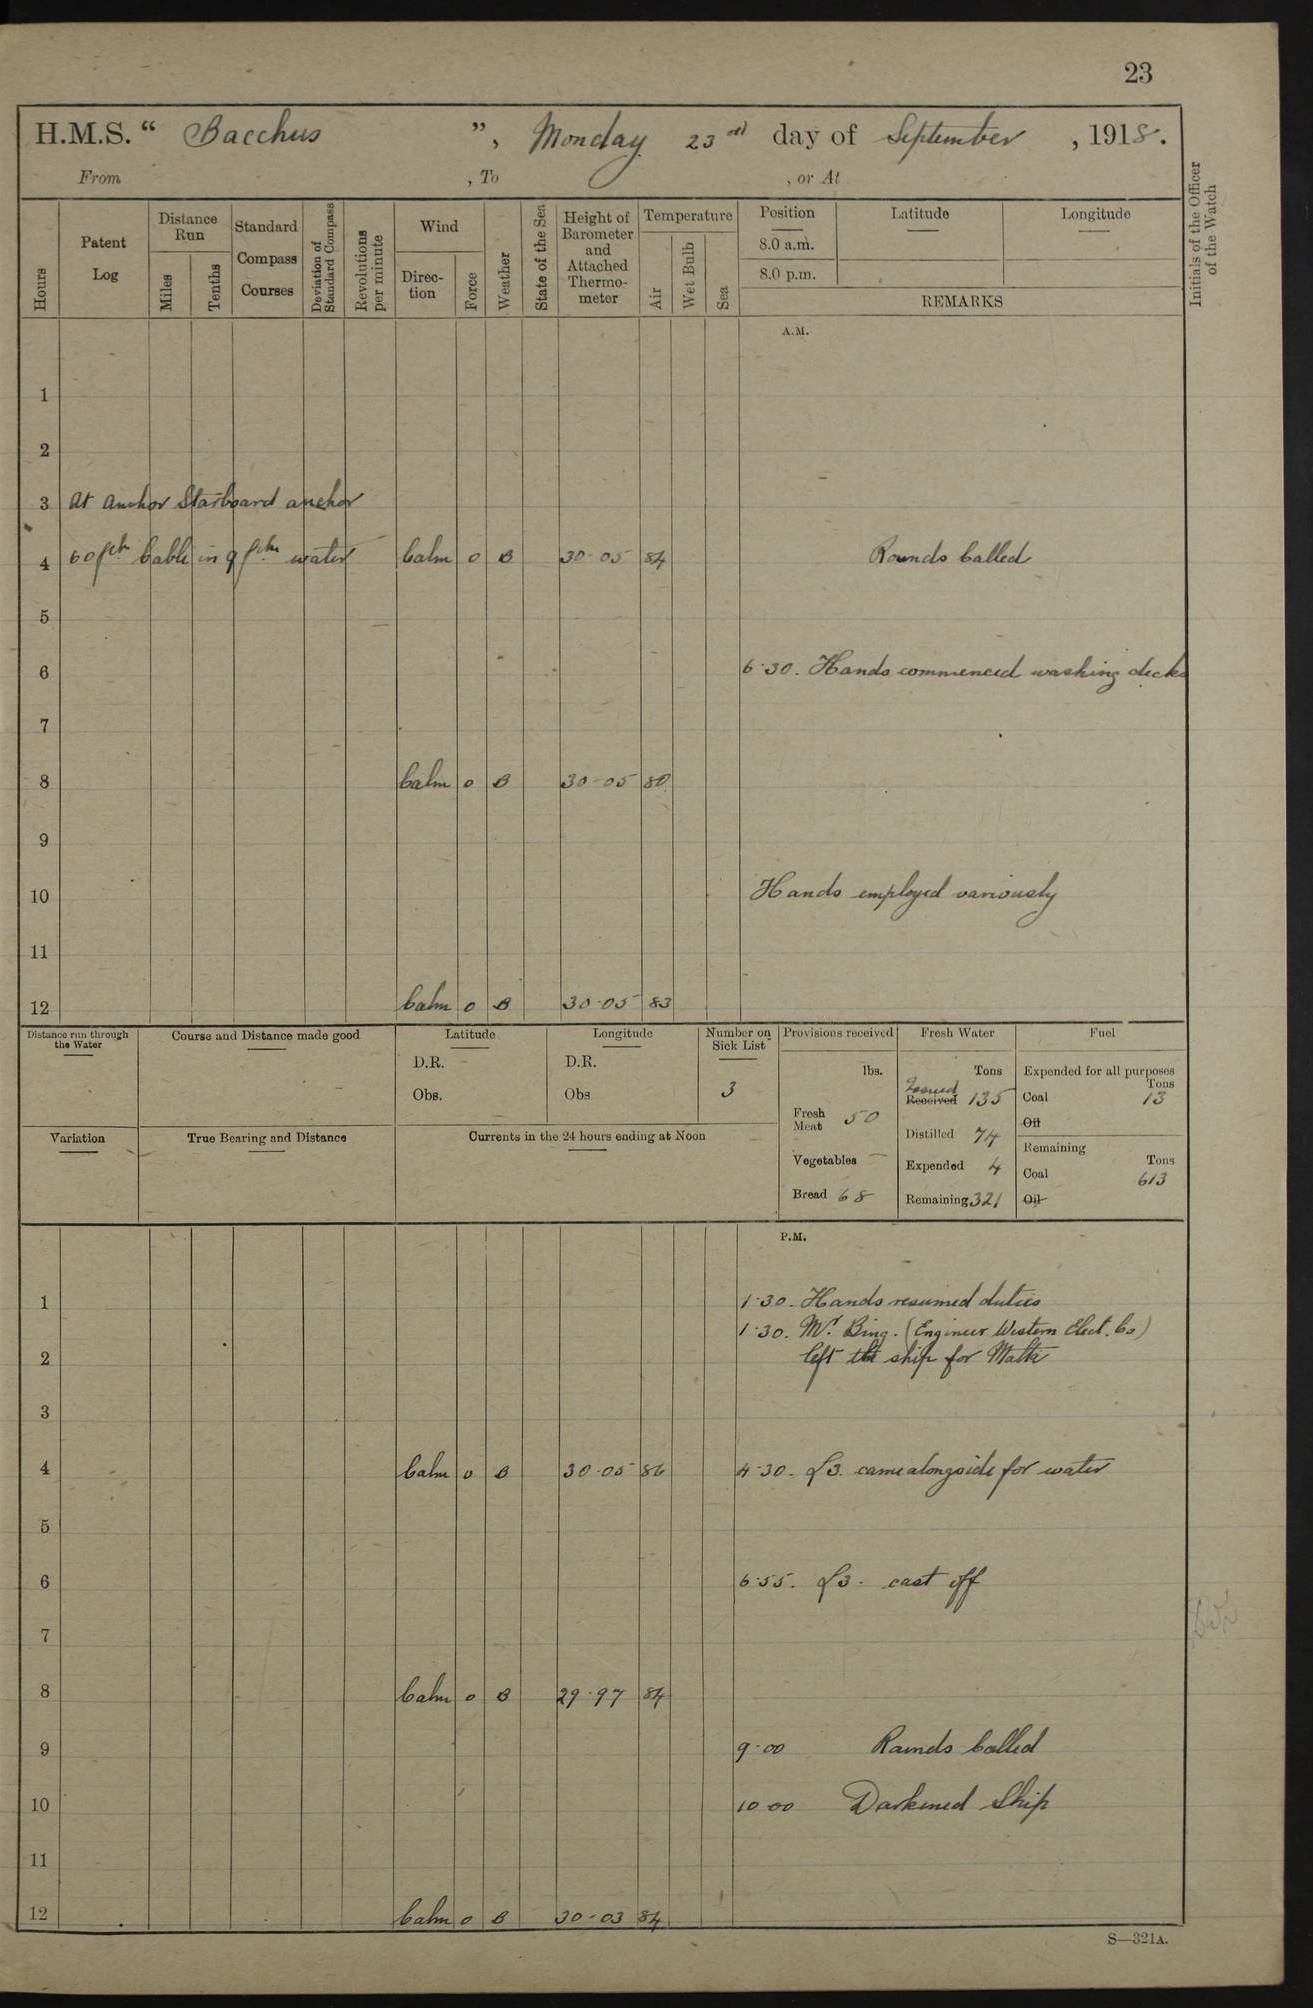 23
H.M.S. “ Bacchus ”, Monday 23rd day of September , 1918.
From , To , or At
Hours
Patent Log
Distance Run
Miles
Tenths
Standard Compass Courses
Deviation of Standard Compass
Revolutions per minute
Wind
Direction
Force
Weather
State of the Sea
Height of Barometer and Attached Thermometer
Temperature
Air
Wet Bulb
Sea
Position
8.0 a.m.
8.0 p.m.
Latitude
Longitude
REMARKS
Initials of the Officer of the Watch
A.M.
1
2
3 At Anchor Starboard anchor
4 60 fth Cable in 9 fthm water Calm 0 B 30-05 84 Rounds Called
5
6 6-30. Hands commenced washing decks
7
8 Calm 0 B 30-05 80
9
10 Hands employed variously
11
12 Calm 0 B 30-05 83
Distance run through the Water
Course and Distance made good
Latitude
D.R.
Obs.
Longitude
D.R.
Obs
Number on Sick List
3
Provisions received
lbs.
Fresh Meat 50
Vegetables —
Bread 68
Fresh Water
Tons
Issued
Received 135
Distilled 74
Expended 4
Remaining 321
Fuel
Expended for all purposes
Tons
Coal 13
Oil
Remaining
Tons
Coal 613
Oil
Variation
True Bearing and Distance
Currents in the 24 hours ending at Noon
P.M.
1 1-30. Hands resumed duties
1-30. Mr. Bing. (Engineer Western Elect. Co)
2 left the ship for Malta
3
4 Calm 0 B 30-05 86 4-30. L3. came alongside for water
5
6 6-55. L3. cast off
7
8 Calm 0 B 29-97 84
9 9-00 Rounds Called
10 10-00 Darkened Ship
11
12 Calm 0 B 30-03 84
S—321A.